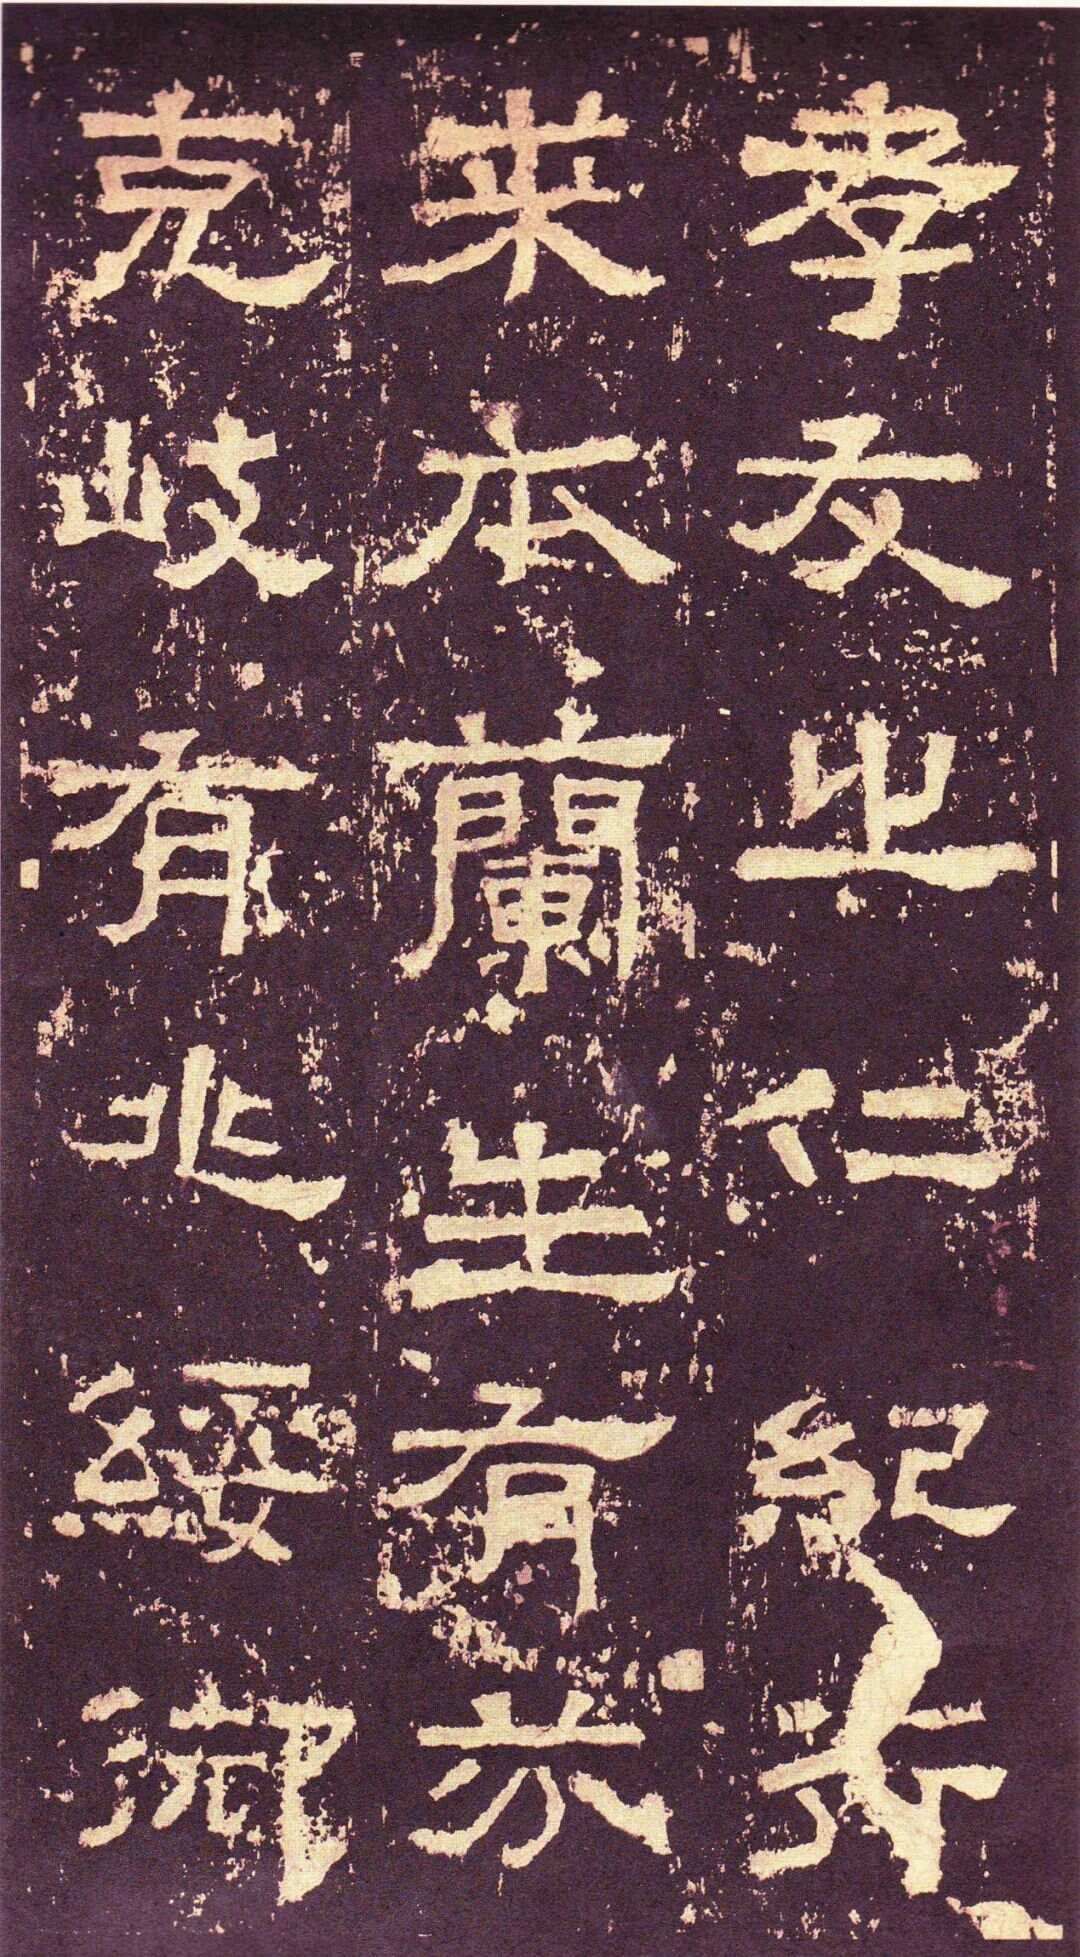 孝友之仁紀行
來本蘭生有芬
克岐有兆綏御